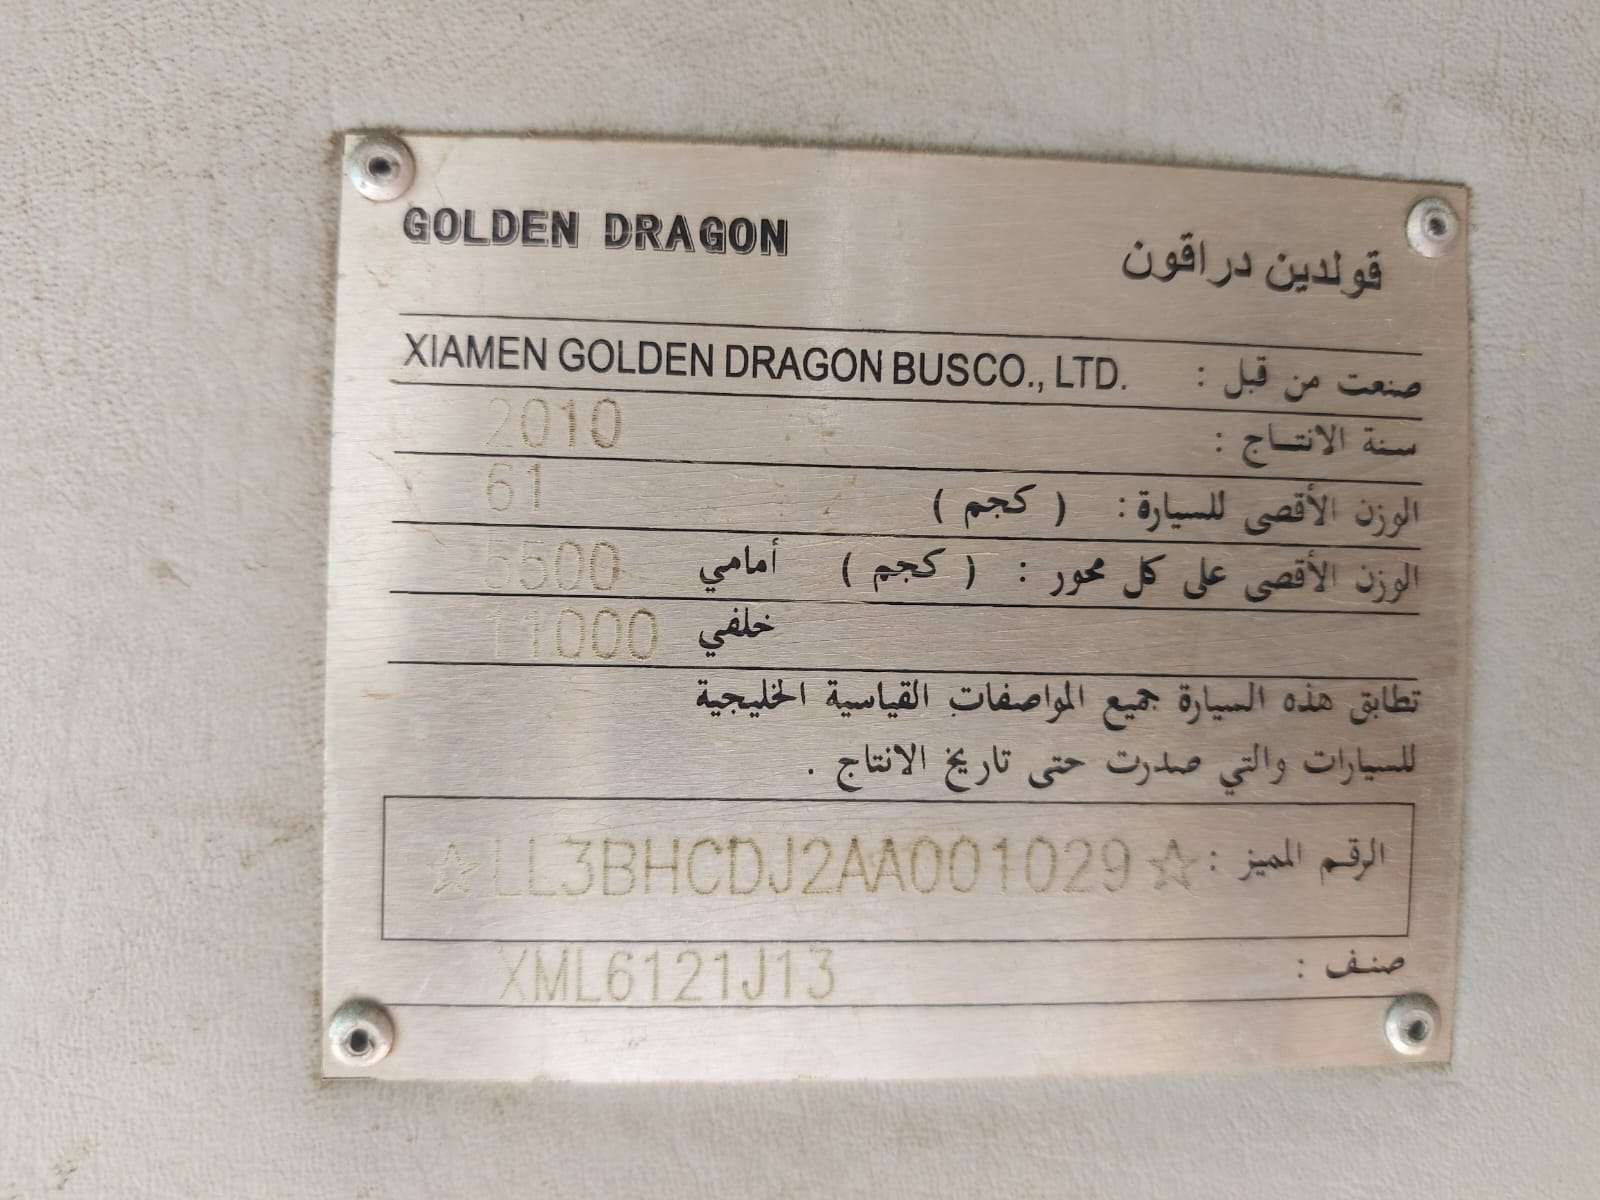 GOLDEN DRAGON قولدين دراقون
صنعت من قبل : XIAMEN GOLDEN DRAGON BUSCO., LTD.
سنة الانتاج : 2010
الوزن الأقصى للسيارة : ( كجم ) 61
الوزن الأقصى على كل محور : ( كجم ) أمامي 5500
خلفي 11000
تطابق هذه السيارة جميع المواصفات القياسية الخليجية
للسيارات والتي صدرت حتى تاريخ الانتاج .
الرقم المميز : ☆LL3BHCDJ2AA001029☆
صنف : XML6121J13